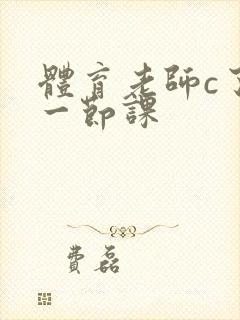 體育老師c了
一節課
費磊